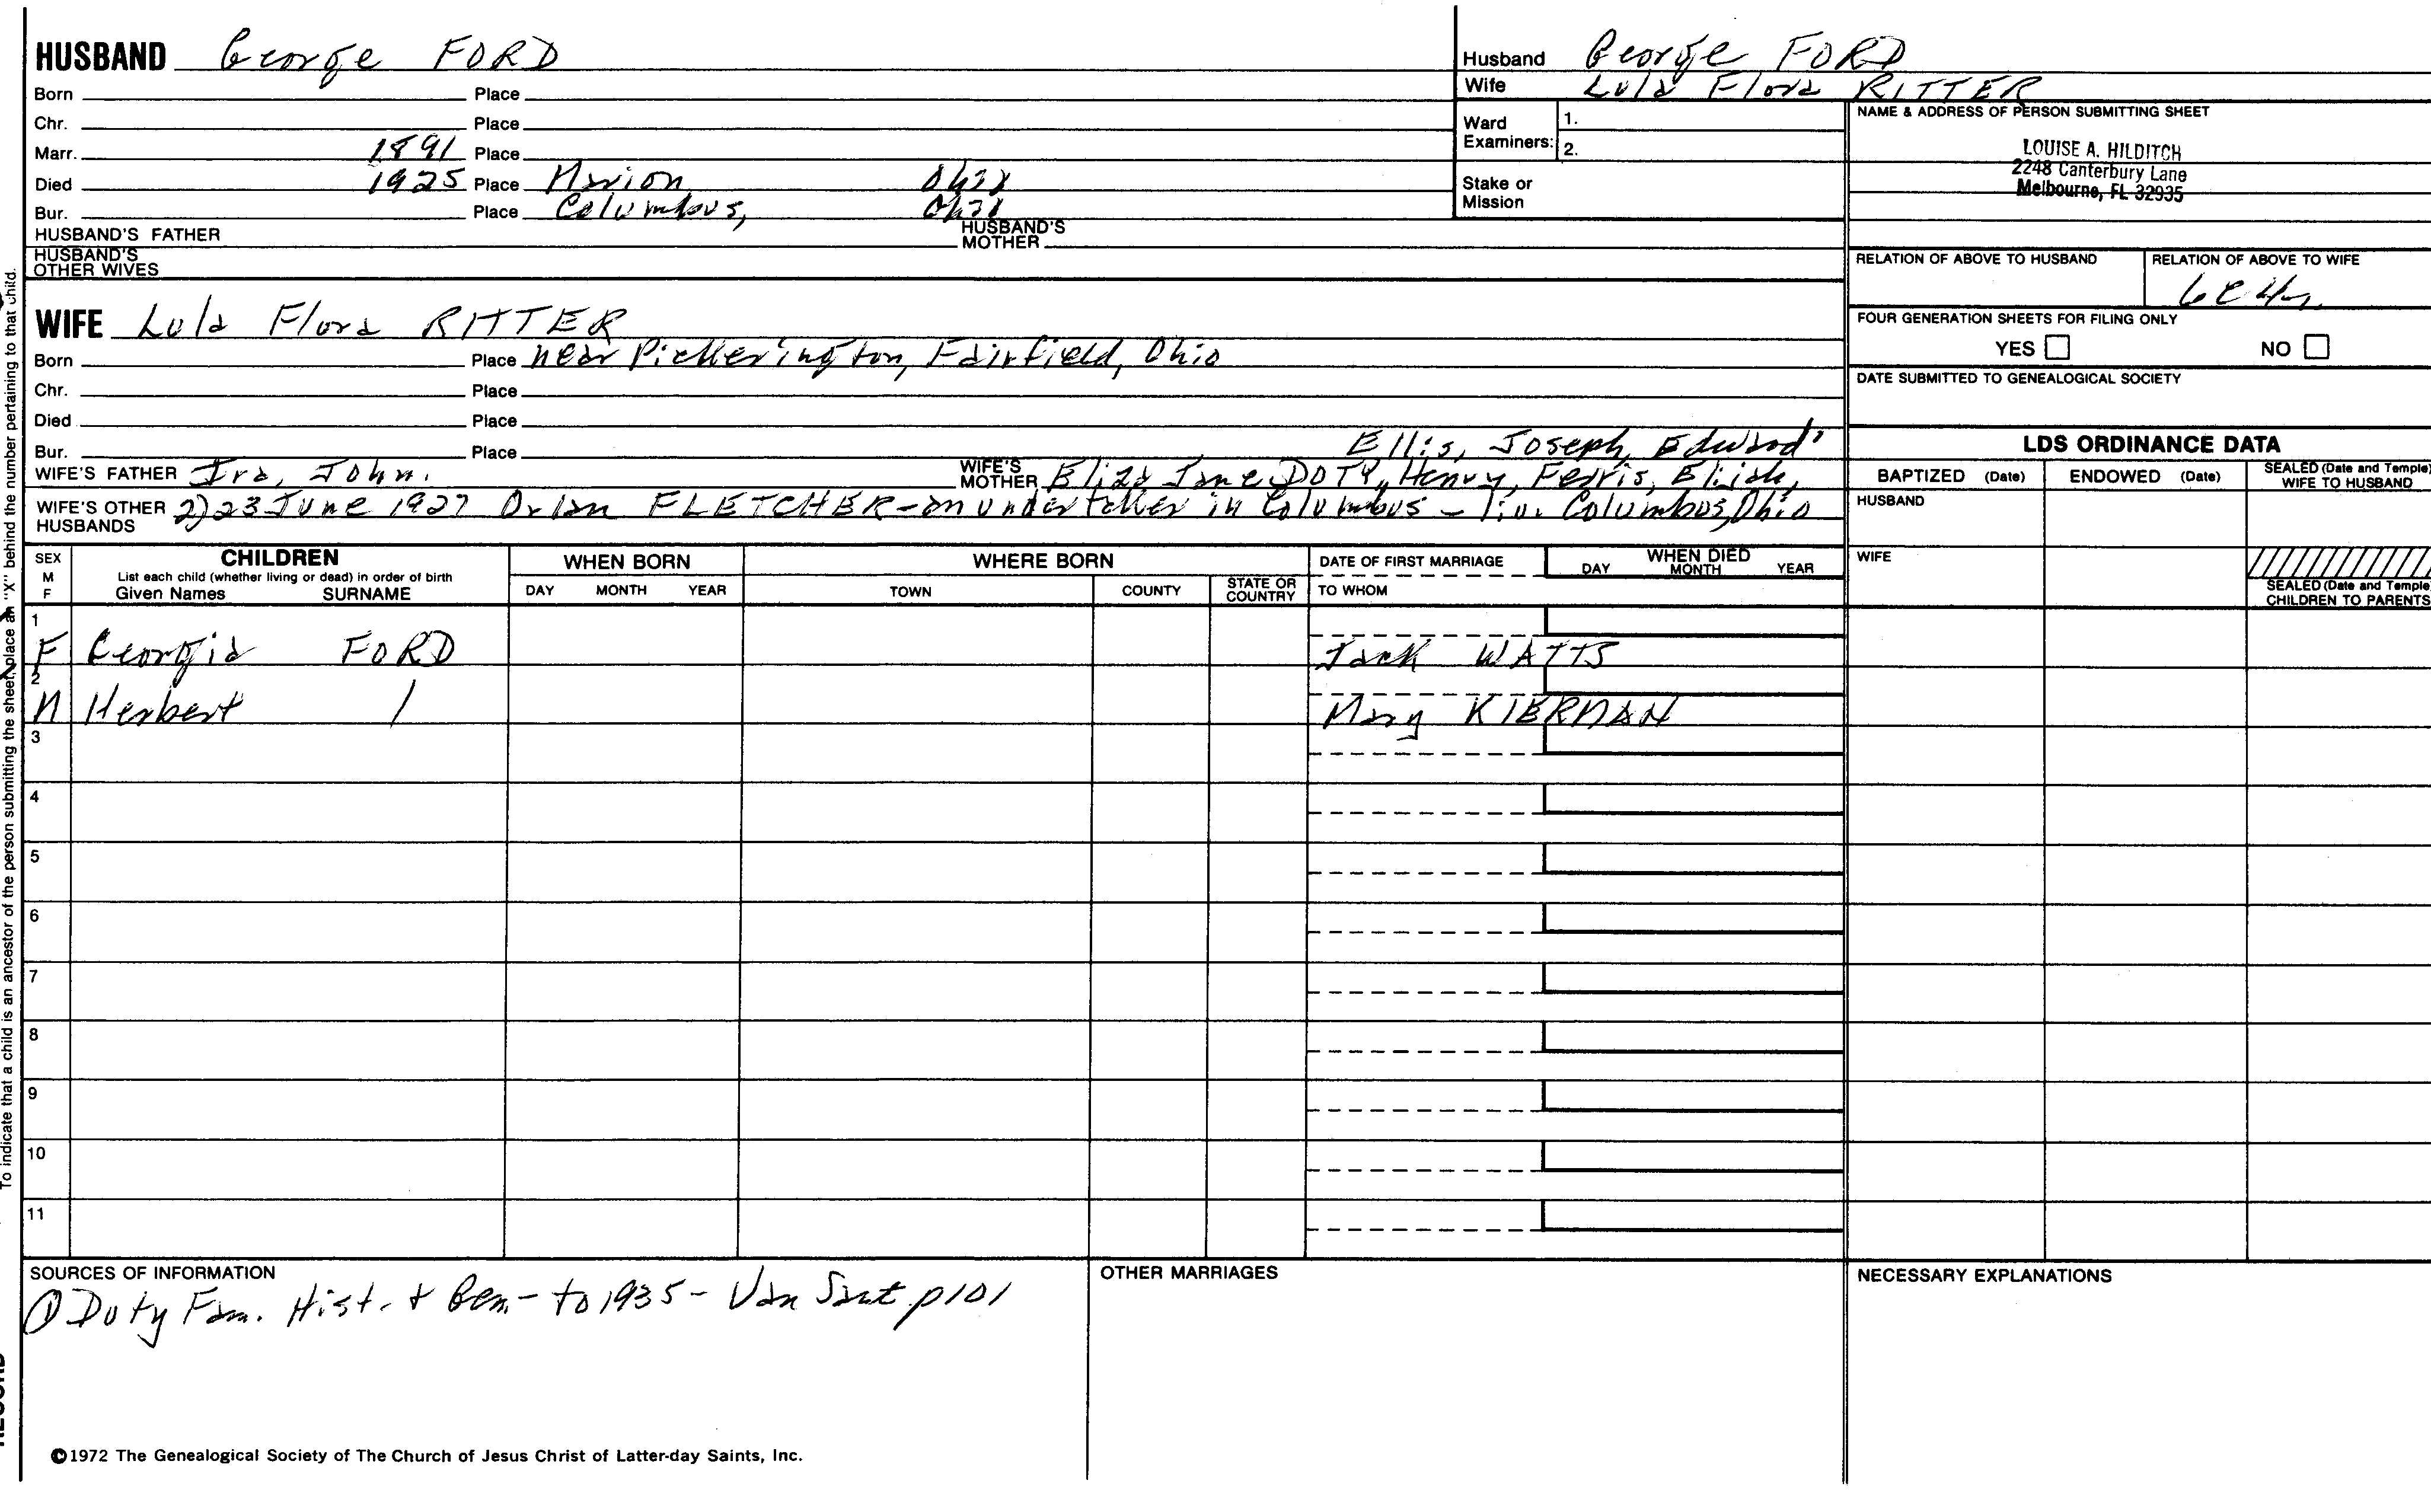 HUSBAND George FORD
Born Place
Chr. Place
Marr. 1891 Place
Died 1925 Place Marion Ohio
Bur. Place Columbus, Ohio
HUSBAND'S FATHER HUSBAND'S MOTHER
HUSBAND'S OTHER WIVES
Husband George FORD
Wife Lula Flora RITTER
Ward Examiners: 1.
2.
Stake or Mission
NAME & ADDRESS OF PERSON SUBMITTING SHEET
LOUISE A. HILDITCH
2248 Canterbury Lane
Melbourne, FL 32935
RELATION OF ABOVE TO HUSBAND RELATION OF ABOVE TO WIFE
FOUR GENERATION SHEETS FOR FILING ONLY
YES NO
DATE SUBMITTED TO GENEALOGICAL SOCIETY
WIFE Lula Flora RITTER
Born Place near Pickerington, Fairfield, Ohio
Chr. Place
Died Place
Bur. Place
Ellis, Joseph, Edward
WIFE'S FATHER Ira, John. WIFE'S MOTHER Eliza Jane DOTY, Henry, Ferris, Elijah,
WIFE'S OTHER HUSBANDS 2) 23 June 1927 Orlan FLETCHER - an undertaker in Columbus - liv. Columbus, Ohio
LDS ORDINANCE DATA
BAPTIZED (Date) ENDOWED (Date) SEALED (Date and Temple) WIFE TO HUSBAND
HUSBAND
WIFE
SEALED (Date and Temple) CHILDREN TO PARENTS
SEX M F
CHILDREN
List each child (whether living or dead) in order of birth
Given Names SURNAME
WHEN BORN
DAY MONTH YEAR
WHERE BORN
TOWN COUNTY STATE OR COUNTRY
DATE OF FIRST MARRIAGE
TO WHOM
WHEN DIED
DAY MONTH YEAR
1
F Georgia FORD Jack WATTS
2
M Herbert / Mary KIERNAN
3
4
5
6
7
8
9
10
11
SOURCES OF INFORMATION
① Doty Fam. Hist. & Gen. - to 1935 - Van Sant p101
OTHER MARRIAGES
NECESSARY EXPLANATIONS
©1972 The Genealogical Society of The Church of Jesus Christ of Latter-day Saints, Inc.
To indicate that a child is an ancestor of the person submitting the sheet, place an "X" behind the number pertaining to that child.